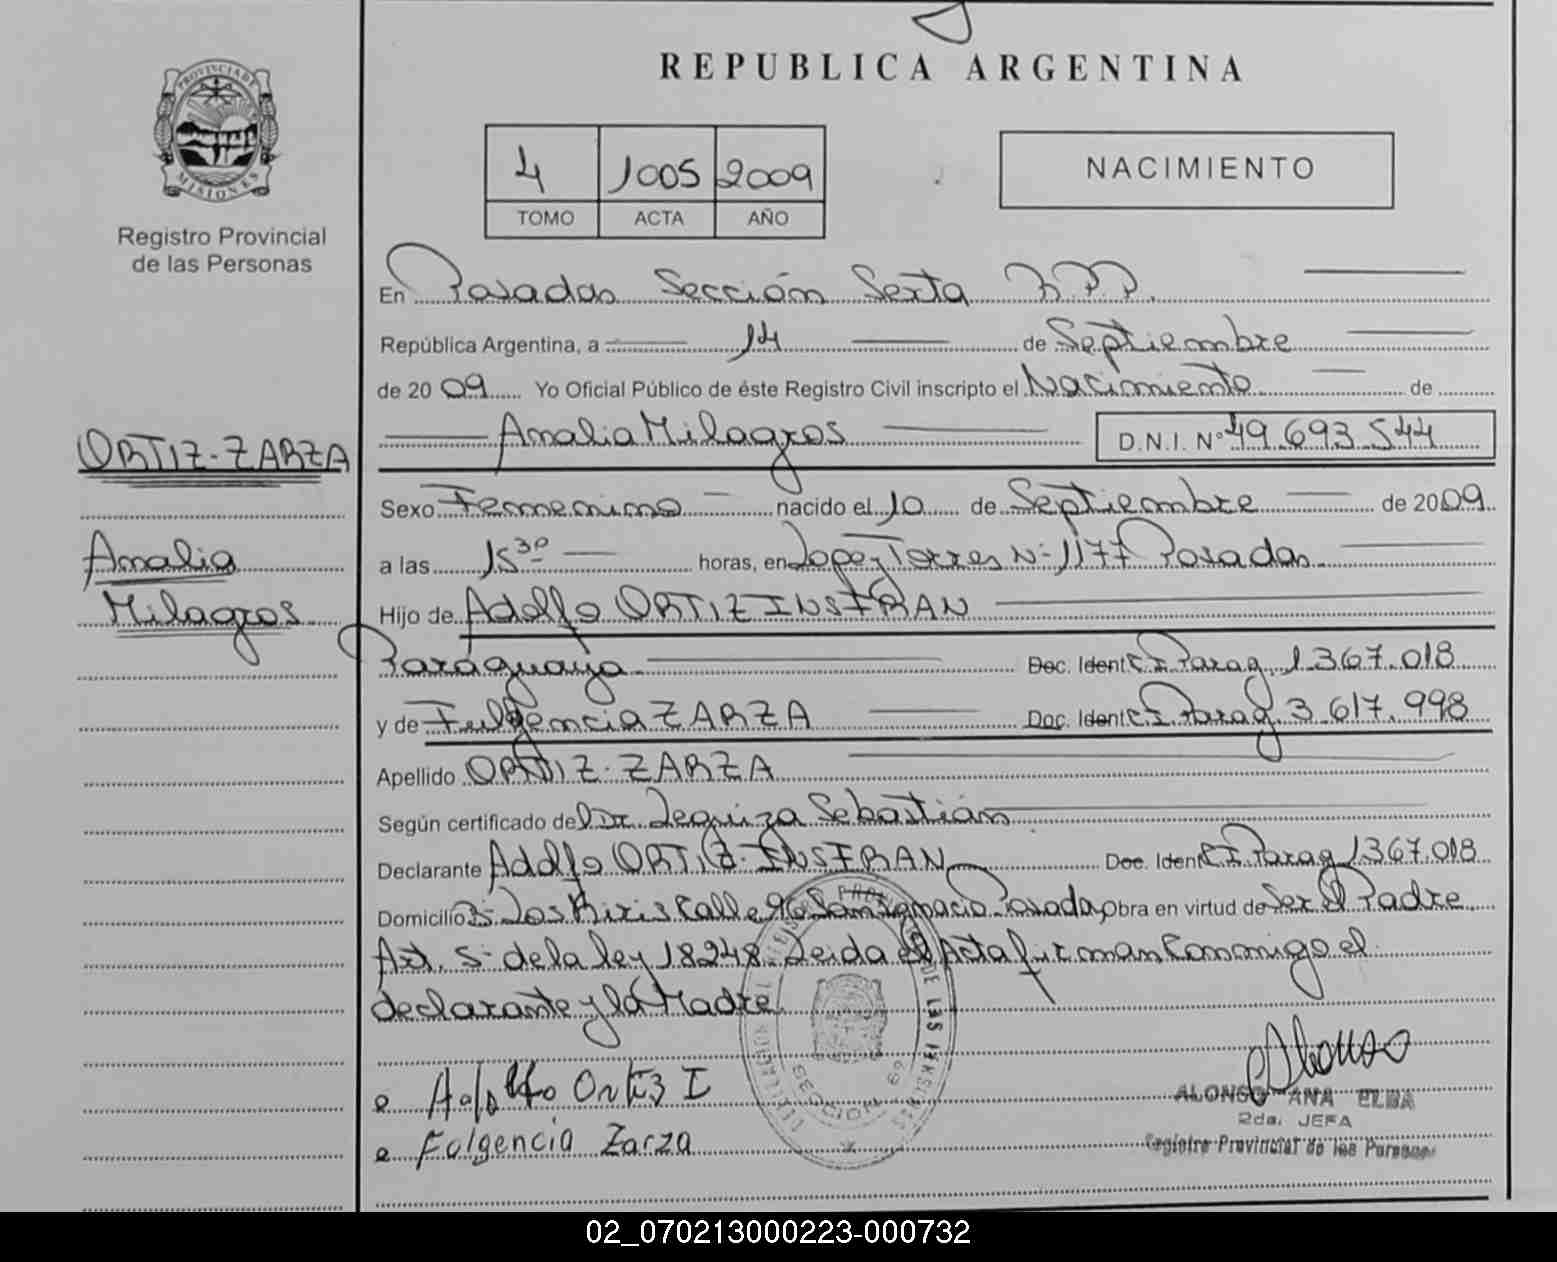 REPUBLICA ARGENTINA
PROVINCIA DE
MISIONES
Registro Provincial
de las Personas
4 1005 2009
TOMO ACTA AÑO
NACIMIENTO
En Posadas Sección Sexta R.P.P.
República Argentina, a 14 de Septiembre
de 2009 Yo Oficial Público de éste Registro Civil inscripto el Nacimiento de
Amalia Milagros D.N.I. N° 49.693.544
ORTIZ-ZARZA
Amalia
Milagros
Sexo Femenino nacido el 10 de Septiembre de 2009
a las 15 30 horas, en Lopez Torres N° 1177 Posadas
Hijo de Adolfo ORTIZ INSFRAN
Paraguaya Doc. Ident C I Parag. 1.367.018
y de Fulgencia ZARZA Doc. Ident C I Parag. 3.617.998
Apellido ORTIZ-ZARZA
Según certificado del Dr. Leguiza Sebastián
Declarante Adolfo ORTIZ-INSFRAN Doc. Ident C I Parag 1367.018
Domicilio B° Los Biris Calle 96 San Ignacio Posadas Obra en virtud de Ser el Padre
Art. 5° de la ley 18248. Leida el Acta firman Conmigo el
declarante y la Madre
Adolfo Ortiz I
Fulgencia Zarza
SECCION 6a
ALONSO ANA ELBA
2da. JEFA
Registro Provincial de las Personas
02_070213000223-000732